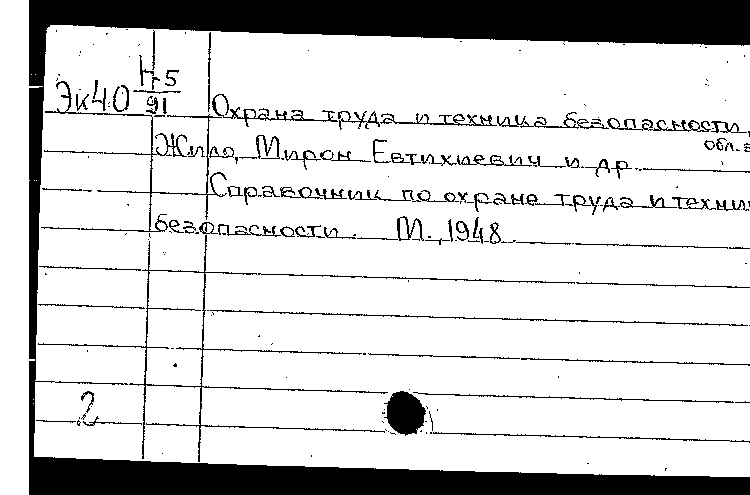 Эк40 Н-5
91
Охрана труда и техника безопасности,
обл.
Жило, Мирон Евтихиевич и др
Справочник по охране труда и техни
безопасности. М., 1948.
2